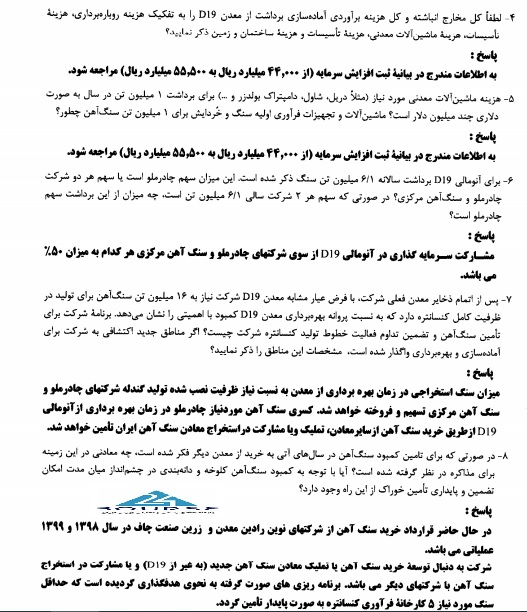 ۴- لطفاً کل مخارج انباشته و کل هزینه برآوردی آماده‌سازی برداشت از معدن D19 را به تفکیک هزینه روباره‌برداری، هزینۀ
تأسیسات، هزینۀ ماشین‌آلات معدنی، هزینۀ تأسیسات و هزینۀ ساختمان و زمین ذکر نمایید؟
پاسخ :
به اطلاعات مندرج در بیانیۀ ثبت افزایش سرمایه (از ۴۴,۰۰۰ میلیارد ریال به ۵۵,۵۰۰ میلیارد ریال) مراجعه شود.
۵- هزینه ماشین‌آلات معدنی مورد نیاز (مثلاً دریل، شاول، دامپتراک بولدزر و ...) برای برداشت ۱ میلیون تن در سال به صورت
دلاری چند میلیون دلار است؟ ماشین‌آلات و تجهیزات فرآوری اولیه سنگ و خُردایش برای ۱ میلیون تن سنگ‌آهن چطور؟
پاسخ :
به اطلاعات مندرج در بیانیۀ ثبت افزایش سرمایه (از ۴۴,۰۰۰ میلیارد ریال به ۵۵,۵۰۰ میلیارد ریال) مراجعه شود.
۶- برای آنومالی D19 برداشت سالانه ۶/۱ میلیون تن سنگ ذکر شده است. این میزان سهم چادرملو است یا سهم هر دو شرکت
چادرملو و سنگ‌آهن مرکزی؟ در صورتی که سهم هر ۲ شرکت سالی ۶/۱ میلیون تن است، چه میزان از این برداشت سهم
چادرملو است؟
پاسخ :
مشــارکت ســرمایه گذاری در آنومالی D19 از سوی شرکتهای چادرملو و سنگ آهن مرکزی هر کدام به میزان ۵۰٪
می باشد.
۷- پس از اتمام ذخایر معدن فعلی شرکت، با فرض عیار مشابه معدن D19 شرکت نیاز به ۱۶ میلیون تن سنگ‌آهن برای تولید در
ظرفیت کامل کنسانتره دارد که به نسبت پروانه بهره‌برداری معدن D19 کمبود با اهمیتی را نشان می‌دهد. برنامۀ شرکت برای
تأمین سنگ‌آهن و تضمین تداوم فعالیت خطوط تولید کنسانتره شرکت چیست؟ اگر مناطق جدید اکتشافی به شرکت برای
آماده‌سازی و بهره‌برداری واگذار شده است، مشخصات این مناطق را ذکر نمایید؟
پاسخ :
میزان سنگ استخراجی در زمان بهره برداری از معدن به نسبت نیاز ظرفیت نصب شده تولید گندله شرکتهای چادرملو و
سنگ آهن مرکزی تسهیم و فروخته خواهد شد. کسری سنگ آهن موردنیاز چادرملو در زمان بهره برداری ازآنومالی
D19 ازطریق خرید سنگ آهن ازسایرمعادن، تملیک ویا مشارکت دراستخراج معادن سنگ آهن ایران تأمین خواهد شد.
۸- در صورتی که برای تامین کمبود سنگ‌آهن در سال‌های آتی به خرید از معدن دیگر فکر شده است، چه معادنی در این زمینه
برای مذاکره در نظر گرفته شده است؟ آیا با توجه به کمبود سنگ‌آهن کلوخه و دانه‌بندی در چشم‌انداز میان مدت امکان
تضمین و پایداری تأمین خوراک از این راه وجود دارد؟
پاسخ :
در حال حاضر قرارداد خرید سنگ آهن از شرکتهای نوین رادین معدن و زرین صنعت چاف در سال ۱۳۹۸ و ۱۳۹۹
عملیاتی می باشد.
شرکت به دنبال توسعۀ خرید سنگ آهن یا تملیک معادن سنگ آهن جدید (به غیر از D19) و یا مشارکت در استخراج
سنگ آهن با شرکتهای دیگر می باشد. برنامه ریزی های صورت گرفته به نحوی هدفگذاری گردیده است که حداقل
سنگ مورد نیاز ۵ کارخانۀ فرآوری کنسانتره به صورت پایدار تأمین گردد.